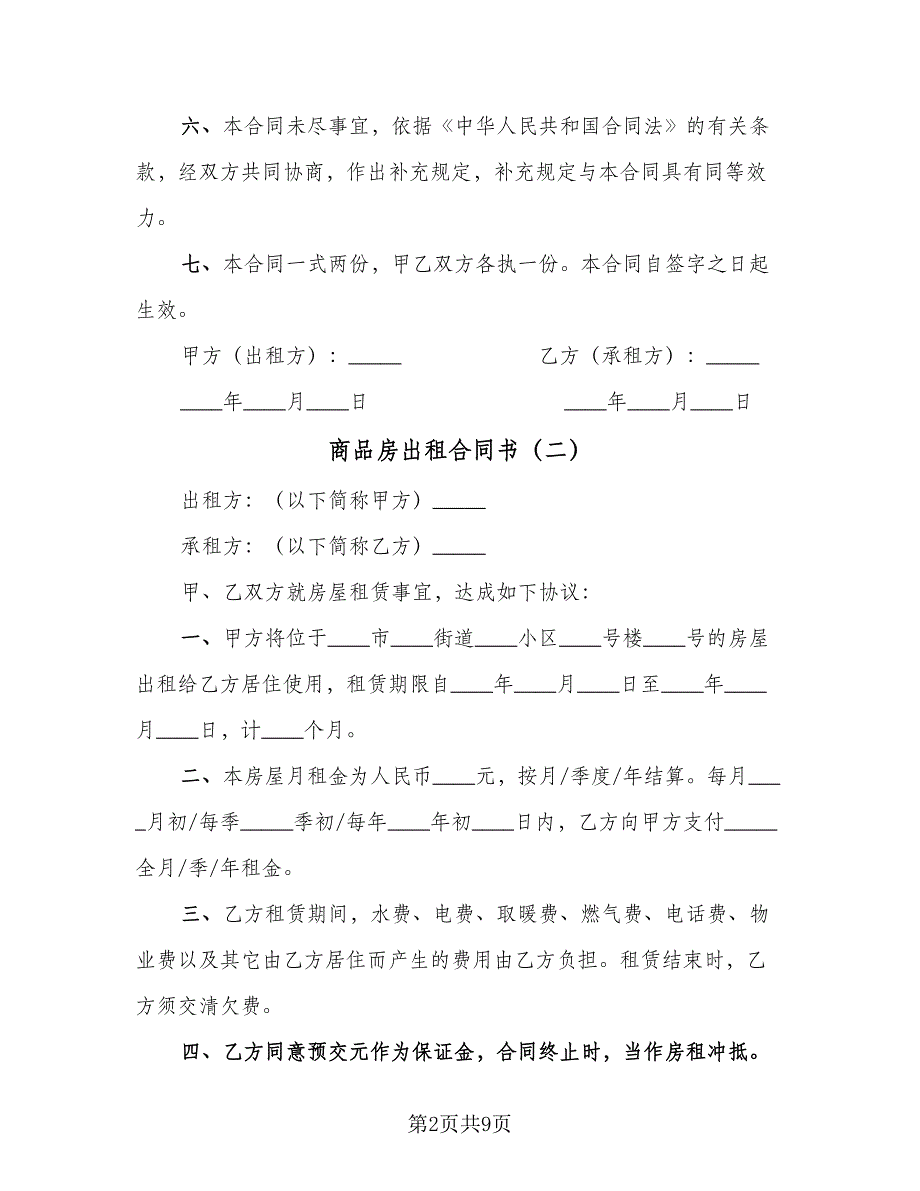 六、本合同未尽事宜，依据《中华人民共和国合同法》的有关条
款，经双方共同协商，作出补充规定，补充规定与本合同具有同等效
力。
七、本合同一式两份，甲乙双方各执一份。本合同自签字之日起
生效。
甲方（出租方）：_____ 乙方（承租方）：_____
____年____月____日 ____年____月____日
商品房出租合同书（二）
出租方：（以下简称甲方）_____
承租方：（以下简称乙方）_____
甲、乙双方就房屋租赁事宜，达成如下协议：
一、甲方将位于____市____街道____小区____号楼____号的房屋
出租给乙方居住使用，租赁期限自____年____月____日至____年____
月____日，计____个月。
二、本房屋月租金为人民币____元，按月/季度/年结算。每月___
_月初/每季_____季初/每年____年初____日内，乙方向甲方支付_____
全月/季/年租金。
三、乙方租赁期间，水费、电费、取暖费、燃气费、电话费、物
业费以及其它由乙方居住而产生的费用由乙方负担。租赁结束时，乙
方须交清欠费。
四、乙方同意预交元作为保证金，合同终止时，当作房租冲抵。
第2页共9页